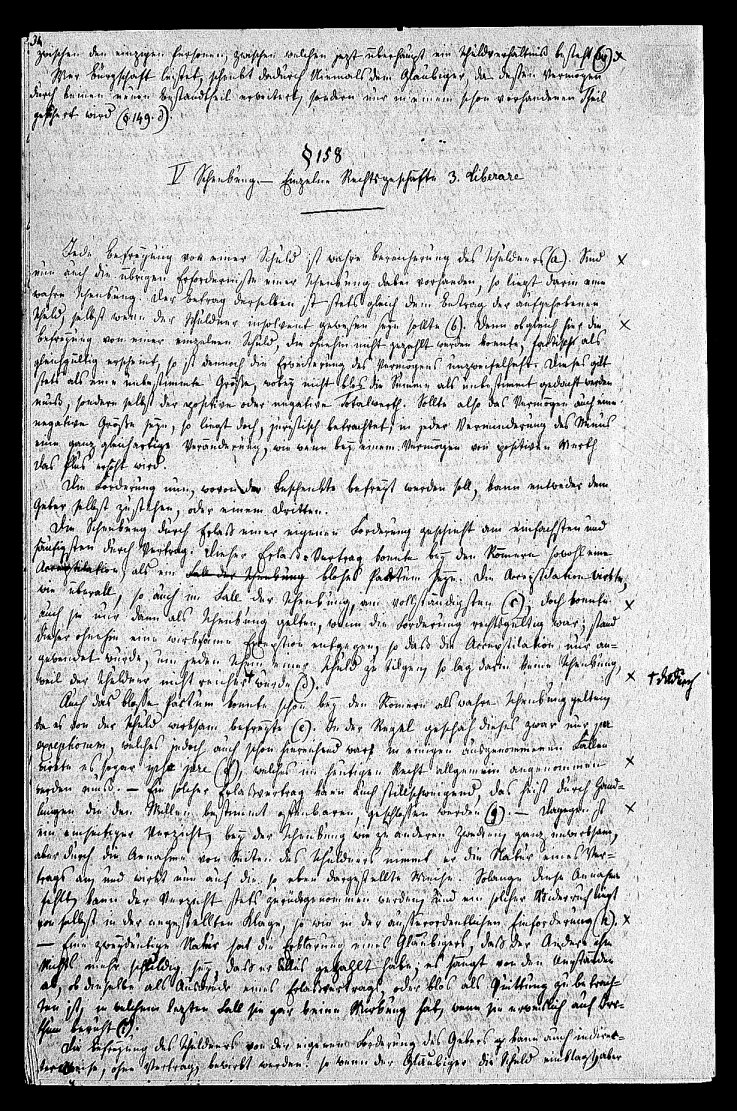 34
zwischen den einzigen Personen, zwischen welchen jetzt überhaupt ein Schuldverhältniß besteht
Wer Bürgschaft leistet, schenkt dadurch niemals dem Gläubiger, da dessen Vermögen
durch keinen neuen Bestandtheil erweitert, sondern nur in einem schon vorhandenen Theil
gesichert wird (§ 149. d).
§ 158
V Schenkung. — Einzelne Rechtsgeschäfte 3. Liberare
Jede Befreyung von einer Schuld ist wahre Bereicherung des Schuldners (a). Sind
nun auch die übrigen Erfordernisse einer Schenkung dabey vorhanden, so liegt darin eine
wahre Schenkung. Der Betrag derselben ist stets gleich dem Betrag der aufgehobenen
Schuld, selbst wenn der Schuldner insolvent gewesen seyn sollte (b). Denn obgleich hier die
Befreyung von einer einzelnen Schuld, die ohnehin nicht gezahlt werden konnte, factisch als
gleichgültig erscheint, so ist dennoch die Erweiterung des Vermögens unzweifelhaft. Dieses gilt
stets als eine unbestimmte Größe, wobey nicht blos die Summe als unbestimmt gedacht werden
muß, sondern selbst der positive oder negative Totalwerth. Sollte also das Vermögen auch eine
negative Größe seyn, so liegt doch, juristisch betrachtet, in jeder Verminderung des Minus
eine ganz gleichartige Veränderung, wie wenn bey einem Vermögen von positivem Werth
das Plus erhöht wird.
Die Forderung nun, wovon der Beschenkte befreyt werden soll, kann entweder dem
Geber selbst zustehen, oder einem Dritten.
Die Schenkung durch Erlaß einer eigenen Forderung geschieht am einfachsten und
häufigsten durch Vertrag. Dieser Erlaß-Vertrag konnte bey den Römern sowohl eine
Acceptilation, als ein bloßes Pactum seyn. Die Acceptilation wirkte,
wie überall, so auch im Fall der Schenkung, am vollständigsten (c), doch konnte
auch sie nur dann als Schenkung gelten, wenn die Forderung rechtsgültig war; stand
dieser ohnehin eine wirksame Exception entgegen, so daß die Acceptilation nur an-
gewendet wurde, um jeden Schein einer Schuld zu tilgen, so lag darin keine Schenkung,
weil der Schuldner nicht reicher wurde (d).
+ dadurch
Auch das bloße Pactum konnte schon bey den Römern als wahre Schenkung gelten,
da es von der Schuld wirksam befreyte (e). In der Regel geschah dieses zwar nur per
exceptionem, welches jedoch auch schon hinreichend war; in einigen ausgenommenen Fällen
wirkte es sogar ipso jure (f), welches im heutigen Recht allgemein angenommen
werden muß. — Ein solcher Erlaßvertrag kann auch stillschweigend, das heißt durch Hand-
lungen die den Willen bestimmt offenbaren, geschlossen werden (g). — Dagegen ist
ein einseitiger Verzicht, bey der Schenkung wie zu anderen Zwecken, ganz unwirksam,
aber durch die Annahme von Seiten des Schuldners nimmt er die Natur eines Ver-
trags an, und wirkt nun auf die so eben dargestellte Weise. Solange diese Annahme
fehlt, kann der Verzicht stets zurückgenommen werden, und ein solcher Widerruf liegt
von selbst in der angestellten Klage, so wie in der außerordentlichen Einforderung (h).
— Eine zweydeutige Natur hat die Erklärung eines Gläubigers, daß der Andere ihm
Nichts mehr schuldig sey, daß er Alles gezahlt habe; es hängt von den Umständen
ab, ob dieselbe als Ausdruck eines Erlaßvertrags, oder blos als Quittung zu betrach-
ten ist, in welchem letzten Fall sie gar keine Wirkung hat, wenn sie erweislich auf Irr-
thum beruht (i).
Die Befreyung des Schuldners von der eigenen Forderung des Gebers kann auch indirect-
erweise, ohne Vertrag, bewirkt werden: so wenn der Gläubiger die Schuld einklagt, aber